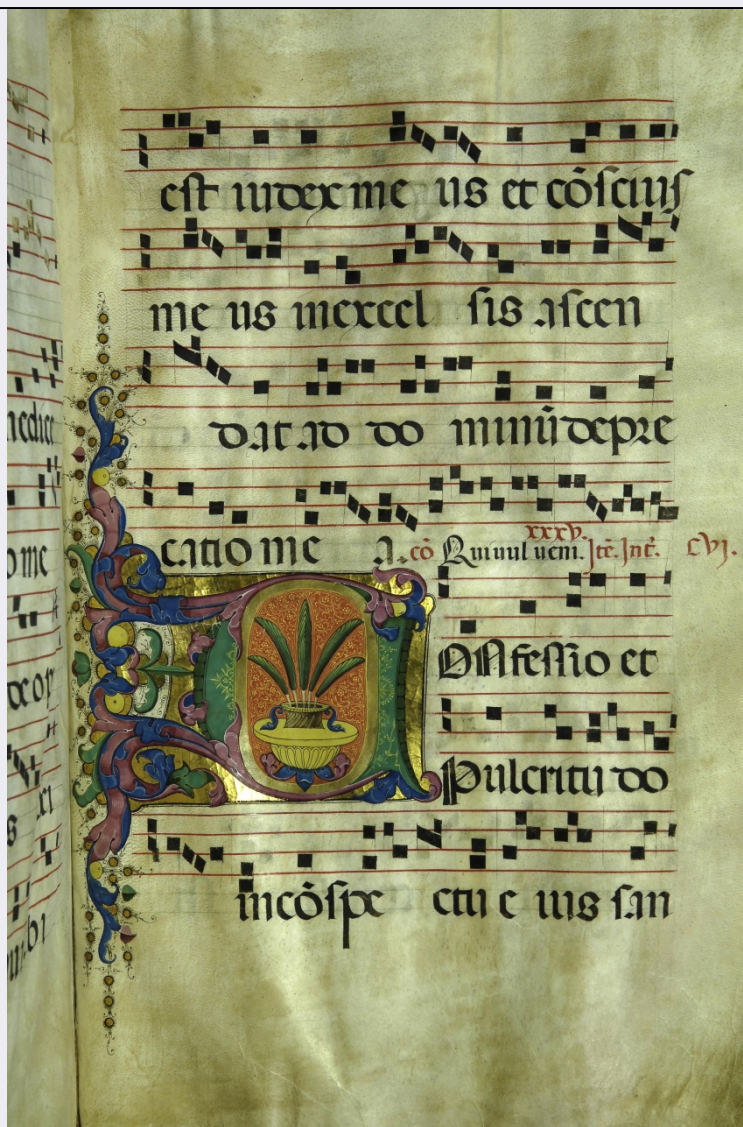 est iudex me us et cōscius
me us inexcel sis ascen
dat ad do minū depre
catio me a. cō Qui vult veni. xxxv. Itē. Int. CVJ.
ONfessio et
Pulcritu do
incōspe ctu e ius san